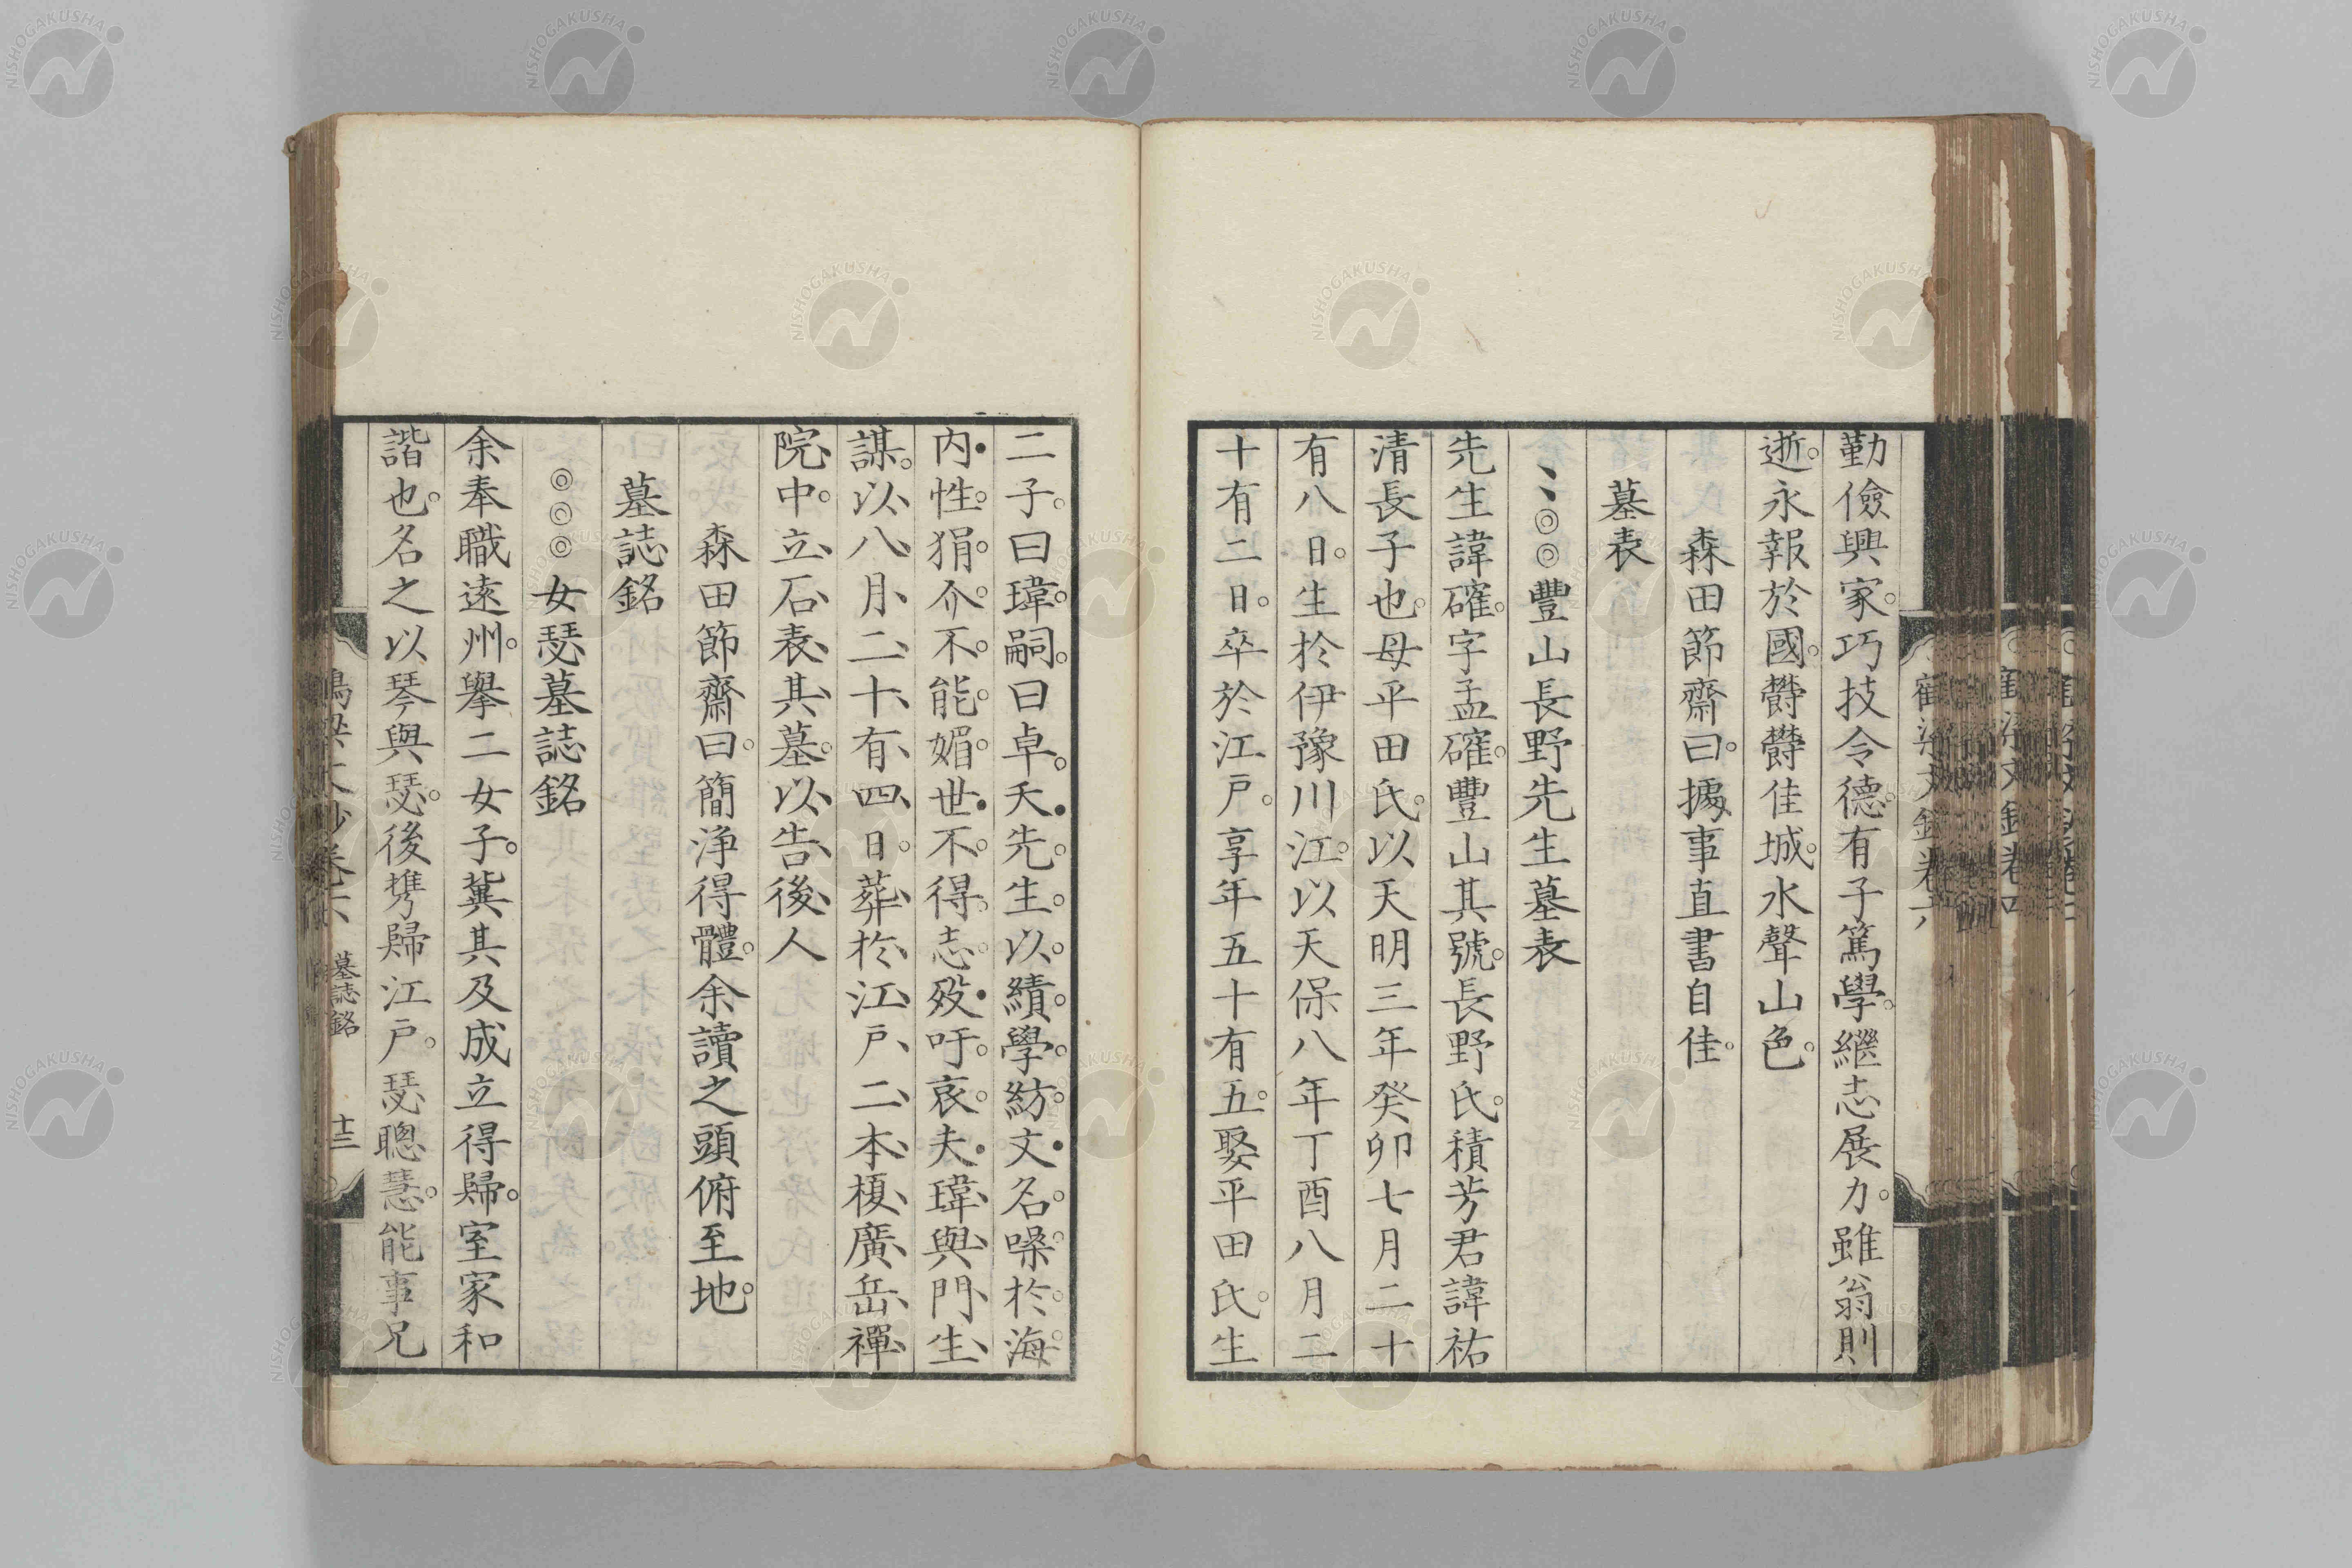 勤儉興家。巧技令德。有子篤學。繼志展力。雖翁則
逝。永報於國。欝欝佳城。水聲山色。
森田節齋曰。據事直書自佳。
墓表
豐山長野先生墓表
先生諱確。字孟確。豐山其號。長野氏。積芳君諱祐
清長子也。母平田氏。以天明三年癸卯七月二十
有八日。生於伊豫川江。以天保八年丁酉八月二
十有二日。卒於江戶。享年五十有五。娶平田氏。生
二子。曰瑋。嗣。曰卓。夭。先生以績學紡文。名噪於海
內。性狷介。不能媚世。不得志歿。吁哀夫。瑋與門生
謀。以八月二十有四日。葬於江戶二本榎廣岳禪
院中。立石表其墓。以告後人
森田節齋曰。簡淨得體。余讀之頭俯至地。
墓誌銘
女瑟墓誌銘
余奉職遠州。擧二女子。冀其及成立得歸。室家和
諧也。名之以琴與瑟。後携歸江戶。瑟聰慧。能事兄
墓誌銘
十三
NISHOGAKUSHA